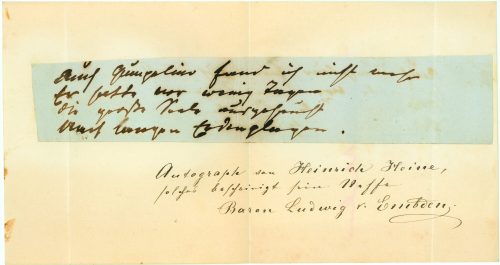 Auch Gumpelino fand ich nicht mehr
Er hatte vor wenig Tagen
die große Seele ausgehaucht
Nach langen Erdenplagen.
Autograph von Heinrich Heine,
solches bescheinigt sein Neffe
Baron Ludwig v. Embden.